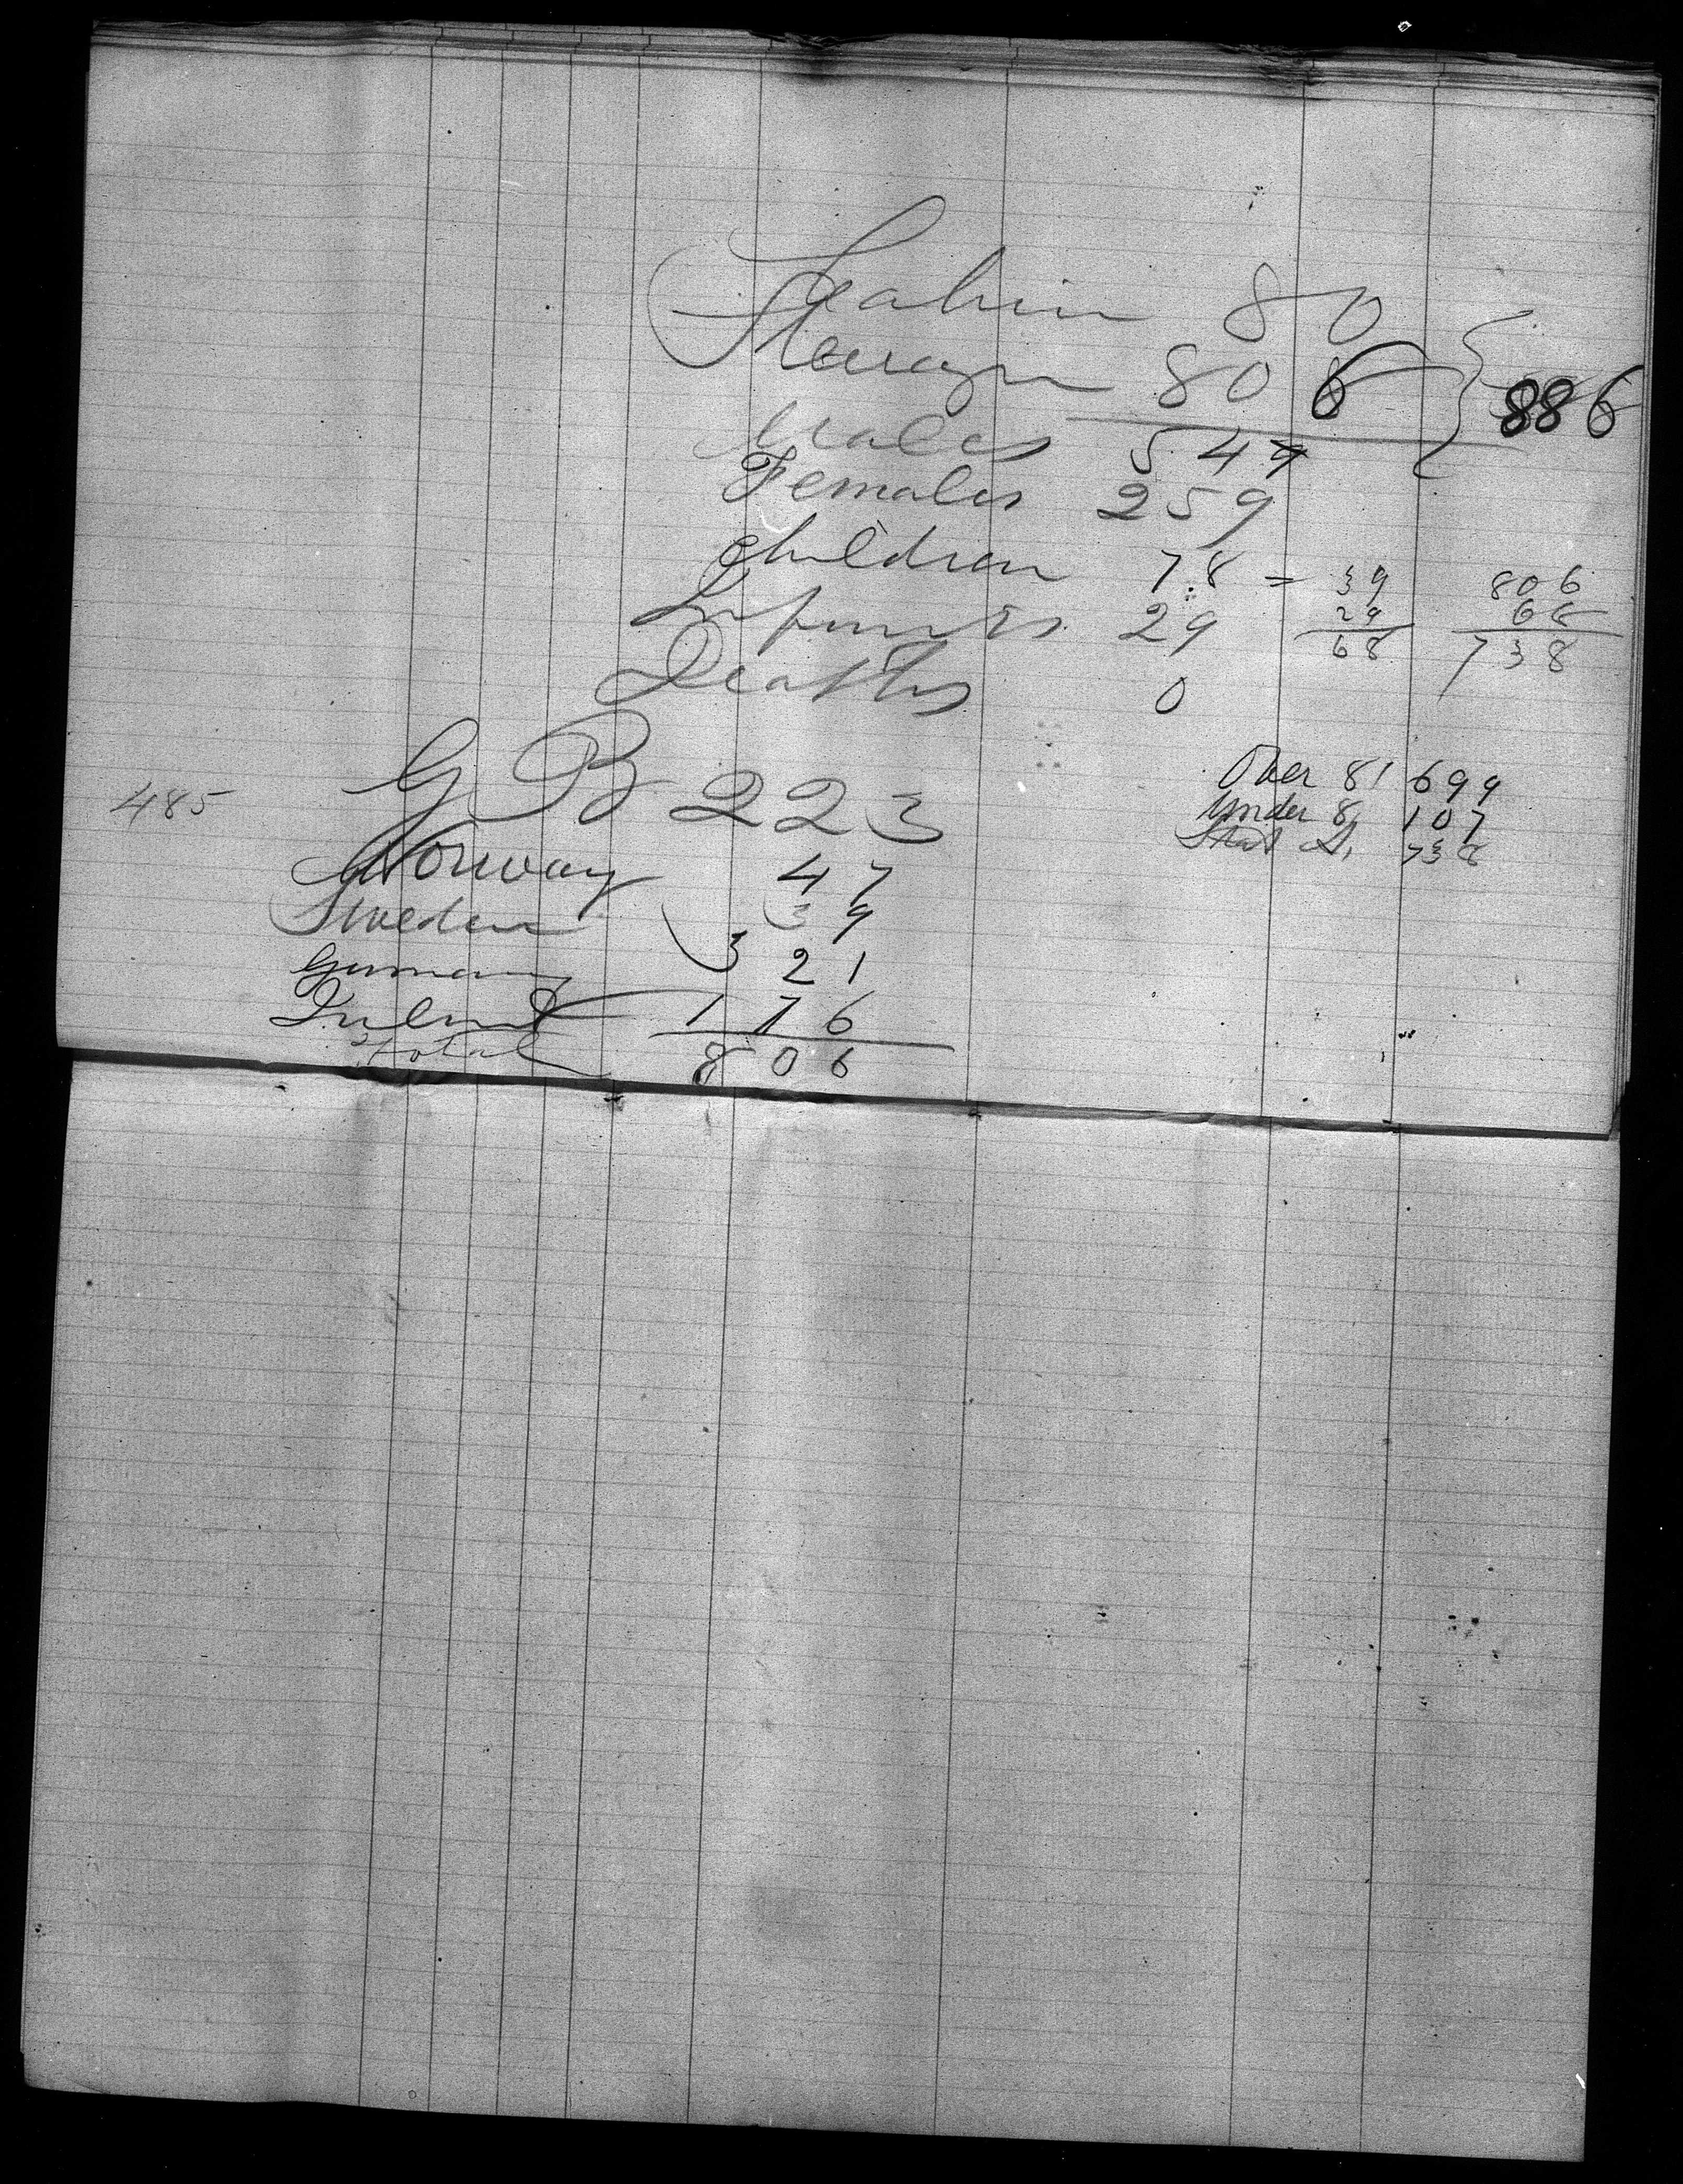 Cabin 80
Steerage 806 } 886
Males 547
Females 259
Children 78 = 39 806
Infants 29 29 68
68 738
Deaths 0
G B 223
485
Over 8 699
Under 8 107
Stat 738
Norway 47
Sweden 39
Germany 321
Ireland 176
Total 806